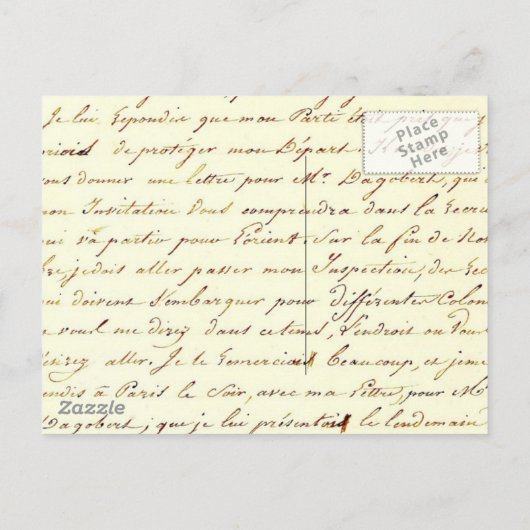 Je lui repondis que mon Parti était pres que
de protéger mon Départ.
vous donner une lettre pour Mr. Dagobert, qui
mon Invitation vous comprendra dans la Recrue
qui va partir pour Lorient. Sur la fin de
je dois aller passer mon Inspection, des
qui doivent s'embarquer pour différentes Colon
me direz dans ce tems, L'endroit ou vous
aller. Je le remerciai Beaucoup, et je me
rendis à Paris le Soir, avec ma Lettre, pour Mr
Dagobert; que je lui présentois le lendemain
Place
Stamp
Here
Zazzle